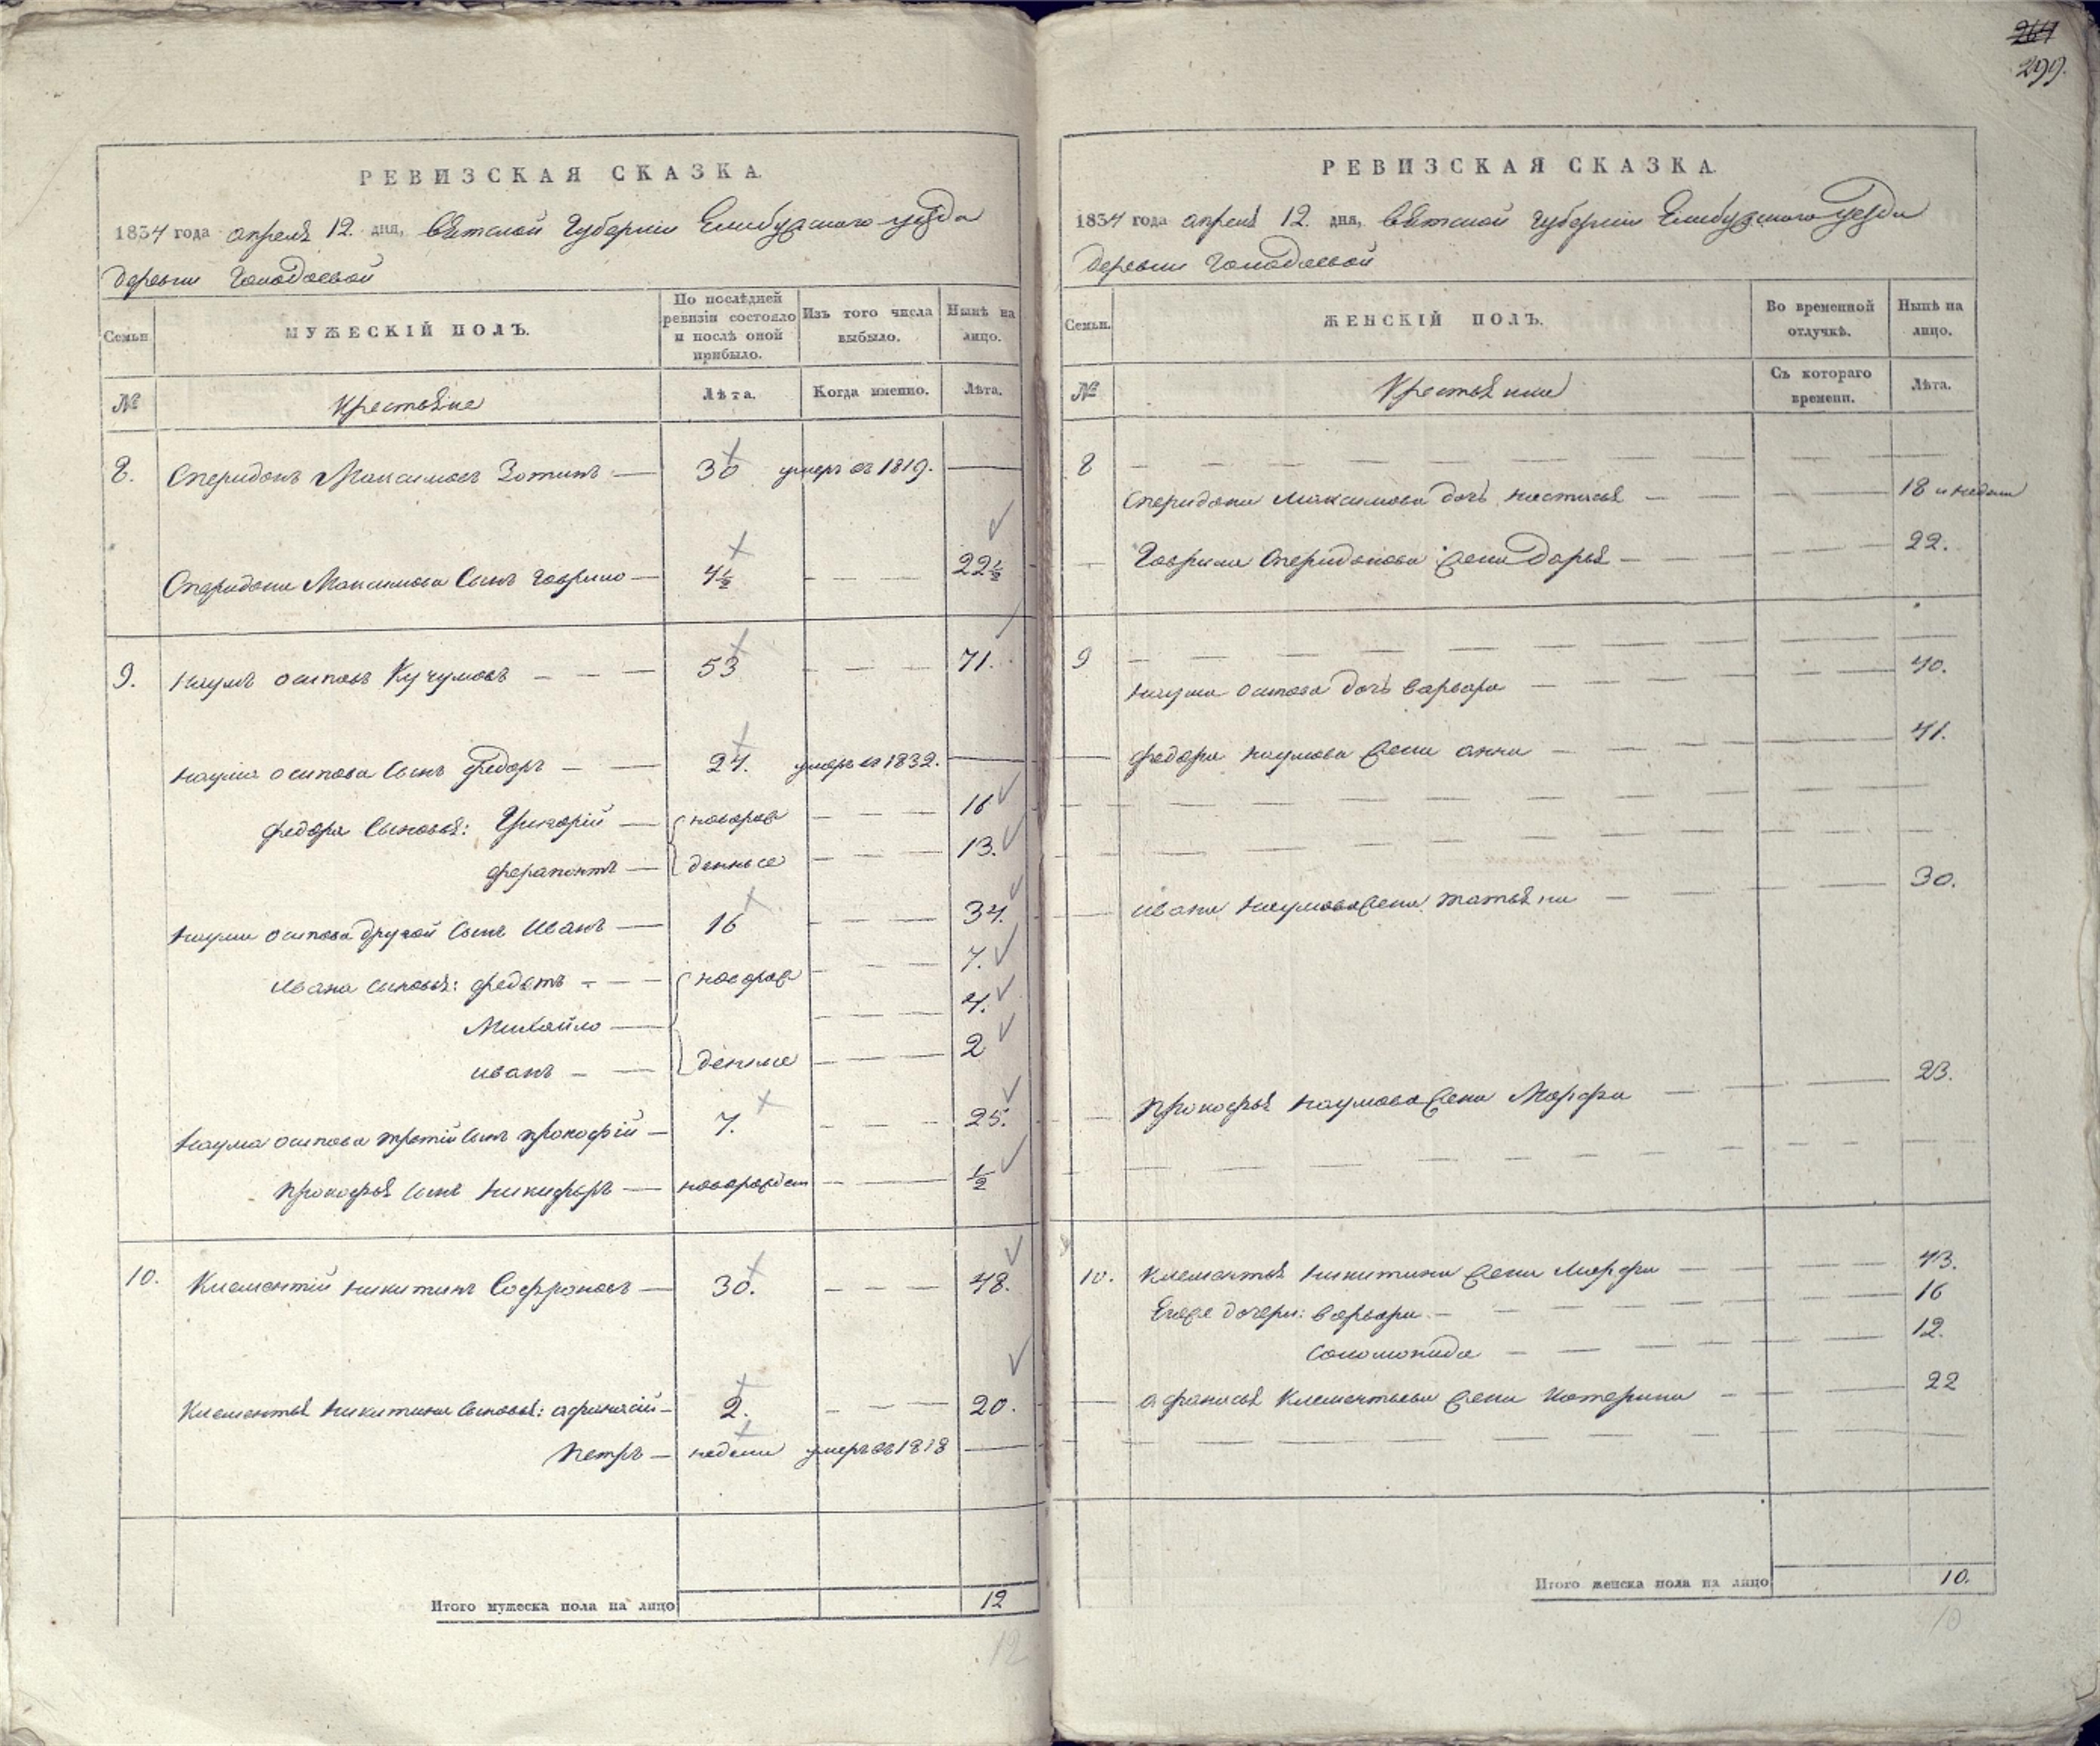 264
299.
РЕВИЗСКАЯ СКАЗКА.
1834 года апреля 12. дня, Вятской Губернии Елабужского уезда
деревни Голодаевой
Семьи
МУЖЕСКІЙ ПОЛЪ.
По послѣдней ревизіи состояло и послѣ оной прибыло.
Изъ того числа выбыло.
Нынѣ на лицо.
№
Крестьяне
Лѣта.
Когда именно.
Лѣта.
8. Спиридонъ Максимовъ Зотинъ — 30 умеръ въ 1819. —
Спиридона Максимова сынъ Гаврило — 4½ — — — 22½
9. Наумъ Осиповъ Кучумовъ — — — 53 — — — 71.
Наума Осипова сынъ Федоръ — — 24. умеръ въ 1832. —
Федора сыновья: Григорій — новорож — — — 16
Ферапонтъ — денные — — — 13.
Наума Осипова другой сынъ Иванъ — 16 — — — 34.
Ивана сыновья: Федотъ — — — новорож — — — 7.
Михайло — — — — 4.
Иванъ — — денные — — — 2
Наума Осипова третій сынъ Прокофій — 7. — — — 25.
Прокофья сынъ Никифоръ — новорожден — — ½
10. Клементій Никитинъ Софроновъ — 30. — — — 48.
Клементья Никитина сыновья: Афанасій — 2. — — — 20.
Петръ — недели умеръ въ 1818 —
Итого мужеска пола на лицо 12
12
РЕВИЗСКАЯ СКАЗКА.
1834 года апреля 12. дня, Вятской Губернии Елабужского уезда
деревни Голодаевой
Семьи.
ЖЕНСКІЙ ПОЛЪ.
Во временной отлучкѣ.
Нынѣ на лицо.
№
Крестьянки
Съ котораго времени.
Лѣта.
8 — — — — — — —
Спиридона Максимова дочь Настасья — — — — 18 и недели
— Гаврила Спиридонова жена Дарья — — — — 22.
9 — — — — — — —
Наума Осипова дочь Варвара — — — — 40.
— Федора Наумова жена Анна — — — — 41.
— Ивана Наумова жена Татьяна — — — 30.
— Прокофья Наумова жена Марфа — — — 23.
10. Клементья Никитина жена Марфа — — — — 43.
Егоже дочери: Варвара — — — — 16
Соломонида — — — — 12.
— Афанасья Клементьева жена Катерина — — — 22
Итого женска пола на лицо 10.
10